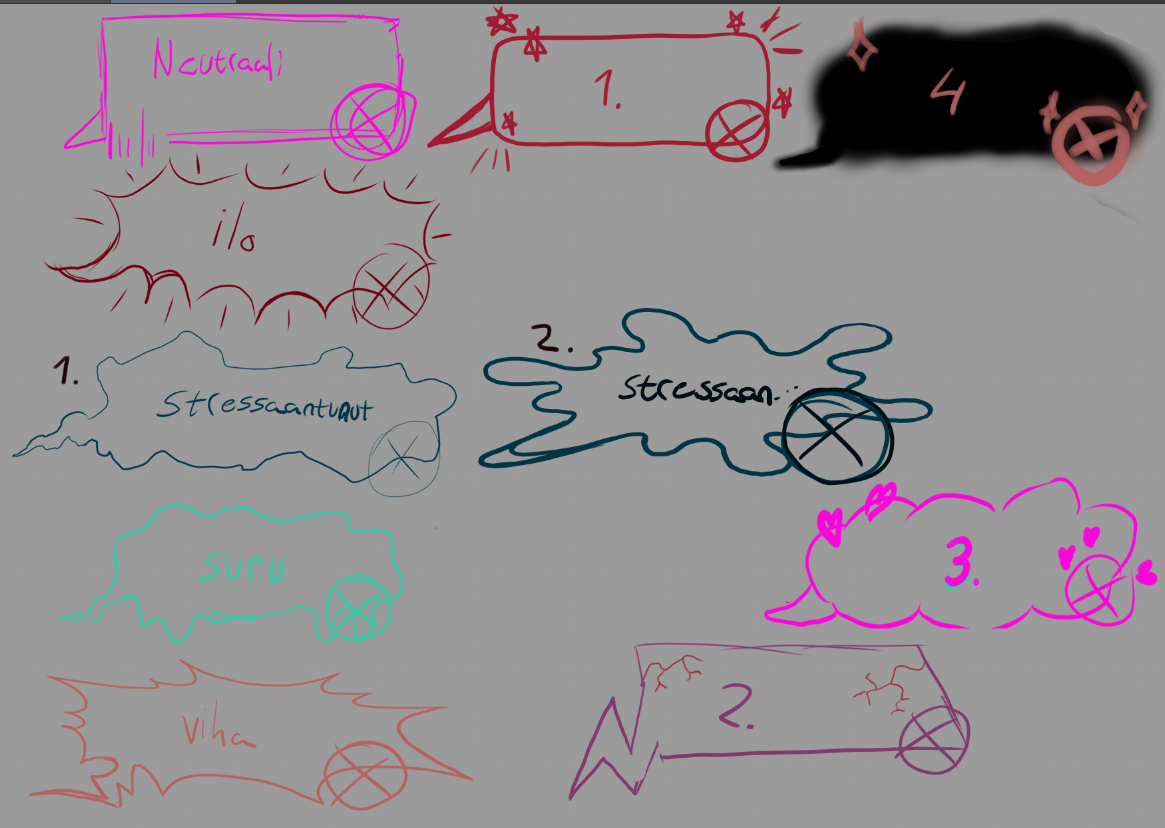 Neutraali
1.
4
ilo
1.
Stressaantunut
2.
Stressaan...
suru
3.
viha
2.